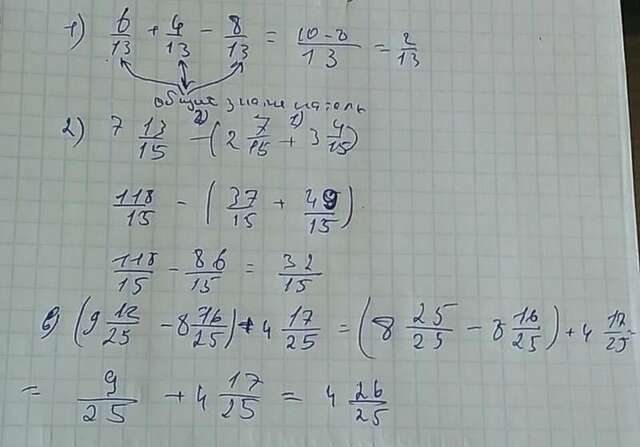 1) 6/13 + 4/13 - 8/13 = 10-8/13 = 2/13
общий знаменатель
2) 7 13/15 - (2 7/15 + 3 4/15)
118/15 - (37/15 + 49/15)
118/15 - 86/15 = 32/15
в) (9 12/25 - 8 16/25) + 4 17/25 = (8 25/25 - 8 16/25) + 4 17/25 =
= 9/25 + 4 17/25 = 4 26/25